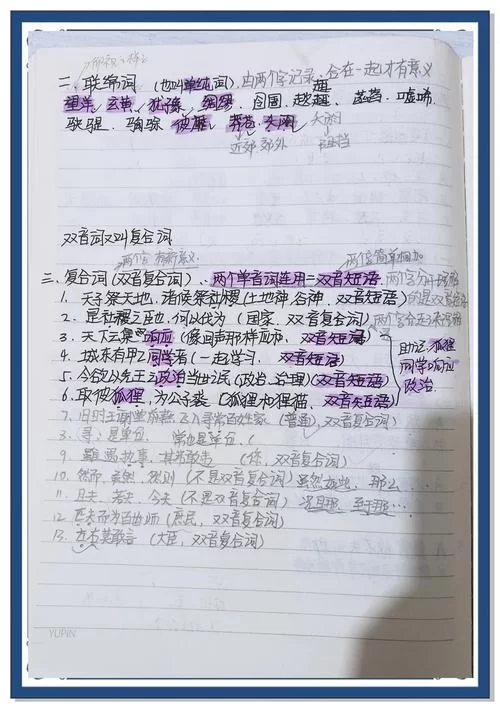 二、联绵词（也叫单纯词）由两个字记录，合在一起才有意义
望羊、玄黄、犹豫、
駃騠、
近郊 郊外 阻挡
双音词又叫复合词
两个字有新意义 两个字简单相加
三、复合词（双音复合词）、两个单音词连用=双音短语
1、天子祭天地，诸侯祭社稷（土地神、谷神，双音短语）
2、是社稷之臣也，何以伐为（国家，双音复合词）
3、天下云集响应（像回声那样应和，双音短语）
4、城东有甲乙同学者（一起学习，双音短语）
5、今欲以先王之政治当世民（政治、治理）（双音短语）
6、取彼狐狸，为公子裘（狐狸和狸猫，双音短语）
助记：狐狸
同学响应
政治
7、旧时王谢堂前燕，飞入寻常百姓家（普通，双音复合词）
8、寻：是单位，常也是单位
9、（你，双音复合词）
10、然而、虽然、然则（不是双音复合词）虽然如此，那么…
11、且夫、若夫、今夫（不是双音复合词）况且那，至于那…
12、匹夫而为百世师（庶民，双音复合词）
13、左右莫敢言（大臣，双音复合词）
YUPIN